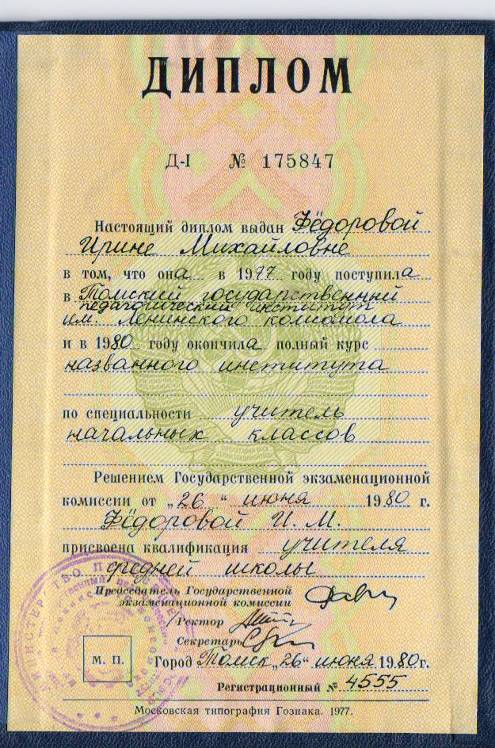 ДИПЛОМ
Д-I № 175847
Настоящий диплом выдан Фёдоровой
Ирине Михайловне
в том, что она в 1977 году поступила
в Томский государственный
педагогический институт
им. Ленинского комсомола
и в 1980 году окончила полный курс
названного института
по специальности учитель
начальных классов
Решением Государственной экзаменационной
комиссии от „26“ июня 1980 г.
Фёдоровой И. М.
присвоена квалификация учителя
средней школы
Председатель Государственной
экзаменационной комиссии
Ректор
Секретарь
М. П.
Город Томск „26“ июня 1980 г.
Регистрационный № 4555
Московская типография Гознака. 1977.